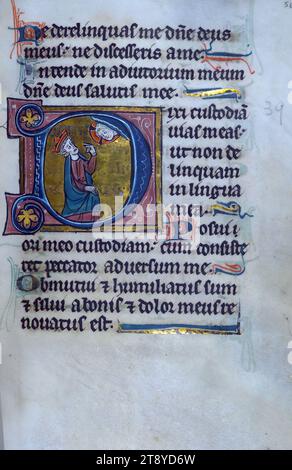 Ne derelinquas me dñe deus
meus: ne discesseris a me
Intende in adiutorium meum
dñe deus salutis mee.
Dixi custodiā
uias meas:
ut non de
linquam
in lingua
mea.
Posui
ori meo custodiam: cum consiste
ret peccator aduersum me.
Obmutui & humiliatus sum
& silui a bonis & dolor meus re
nouatus est.
39
alamy
Image ID: 2T8YD6W
www.alamy.com